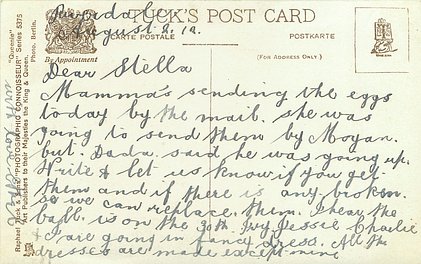 TUCK'S POST CARD
August 2. 12.
CARTE POSTALE
POSTKARTE
By Appointment
(FOR ADDRESS ONLY)
Dear Stella
Mamma's sending the eggs
today by the mail. she was
going to send them by Moyan.
but. Dada said he was going up.
Write & let us know if you get
them and if there is any broken.
so we can replace them. I hear the
ball is on the 30th Ivy Jessie Charlie
& I are going in fancy dress. All the
dresses are made except mine
with love from
Raphael Tuck & Sons "PHOTOGRAPHIC CONNOISSEUR" Series 5375
Art Publishers to their Majesties the King & Queen.
"Queenie"
Photo. Berlin.